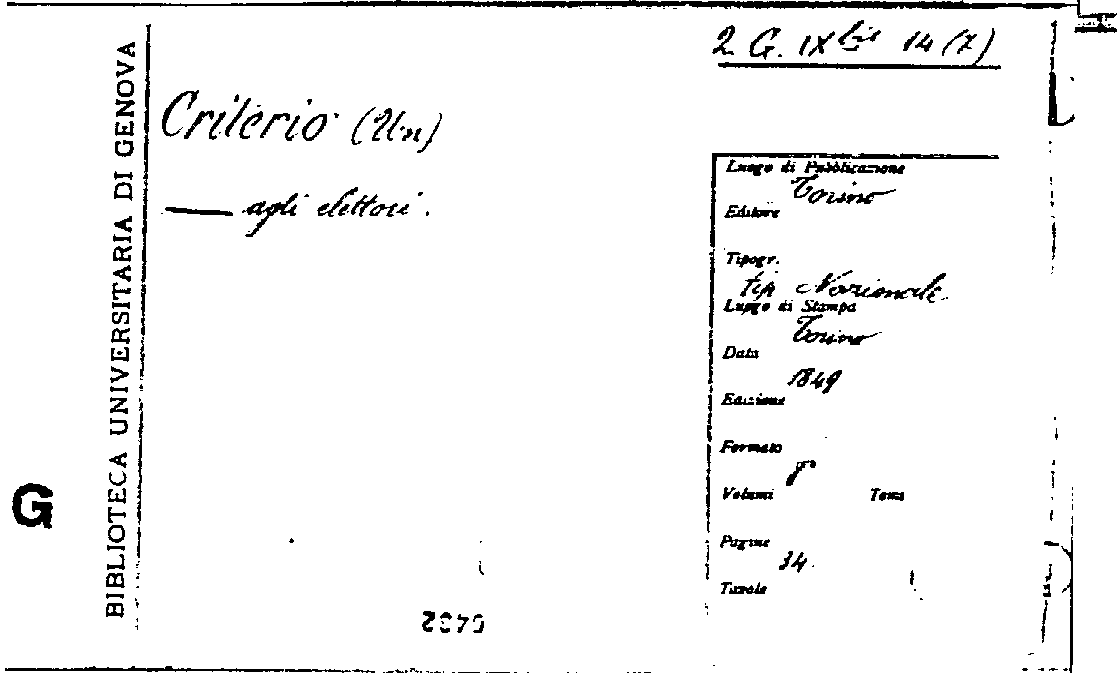 2 G. IX bis 14 (X)
Criterio (Un)
— agli elettori.
BIBLIOTECA UNIVERSITARIA DI GENOVA
G
Luogo di Pubblicazione
Torino
Editore
Tipogr.
tip Nazionale
Luogo di Stampa
Torino
Data
1849
Edizione
Formato
8°
Volumi Tomi
Pagine
34.
Tavole